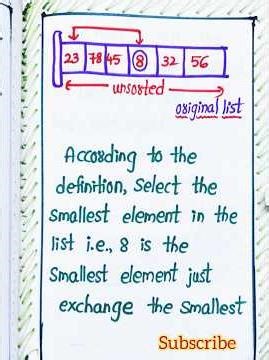 23 78 45 8 32 56
unsorted
original list
According to the
definition, Select the
smallest element in the
list i.e., 8 is the
smallest element just
exchange the smallest
Subscribe